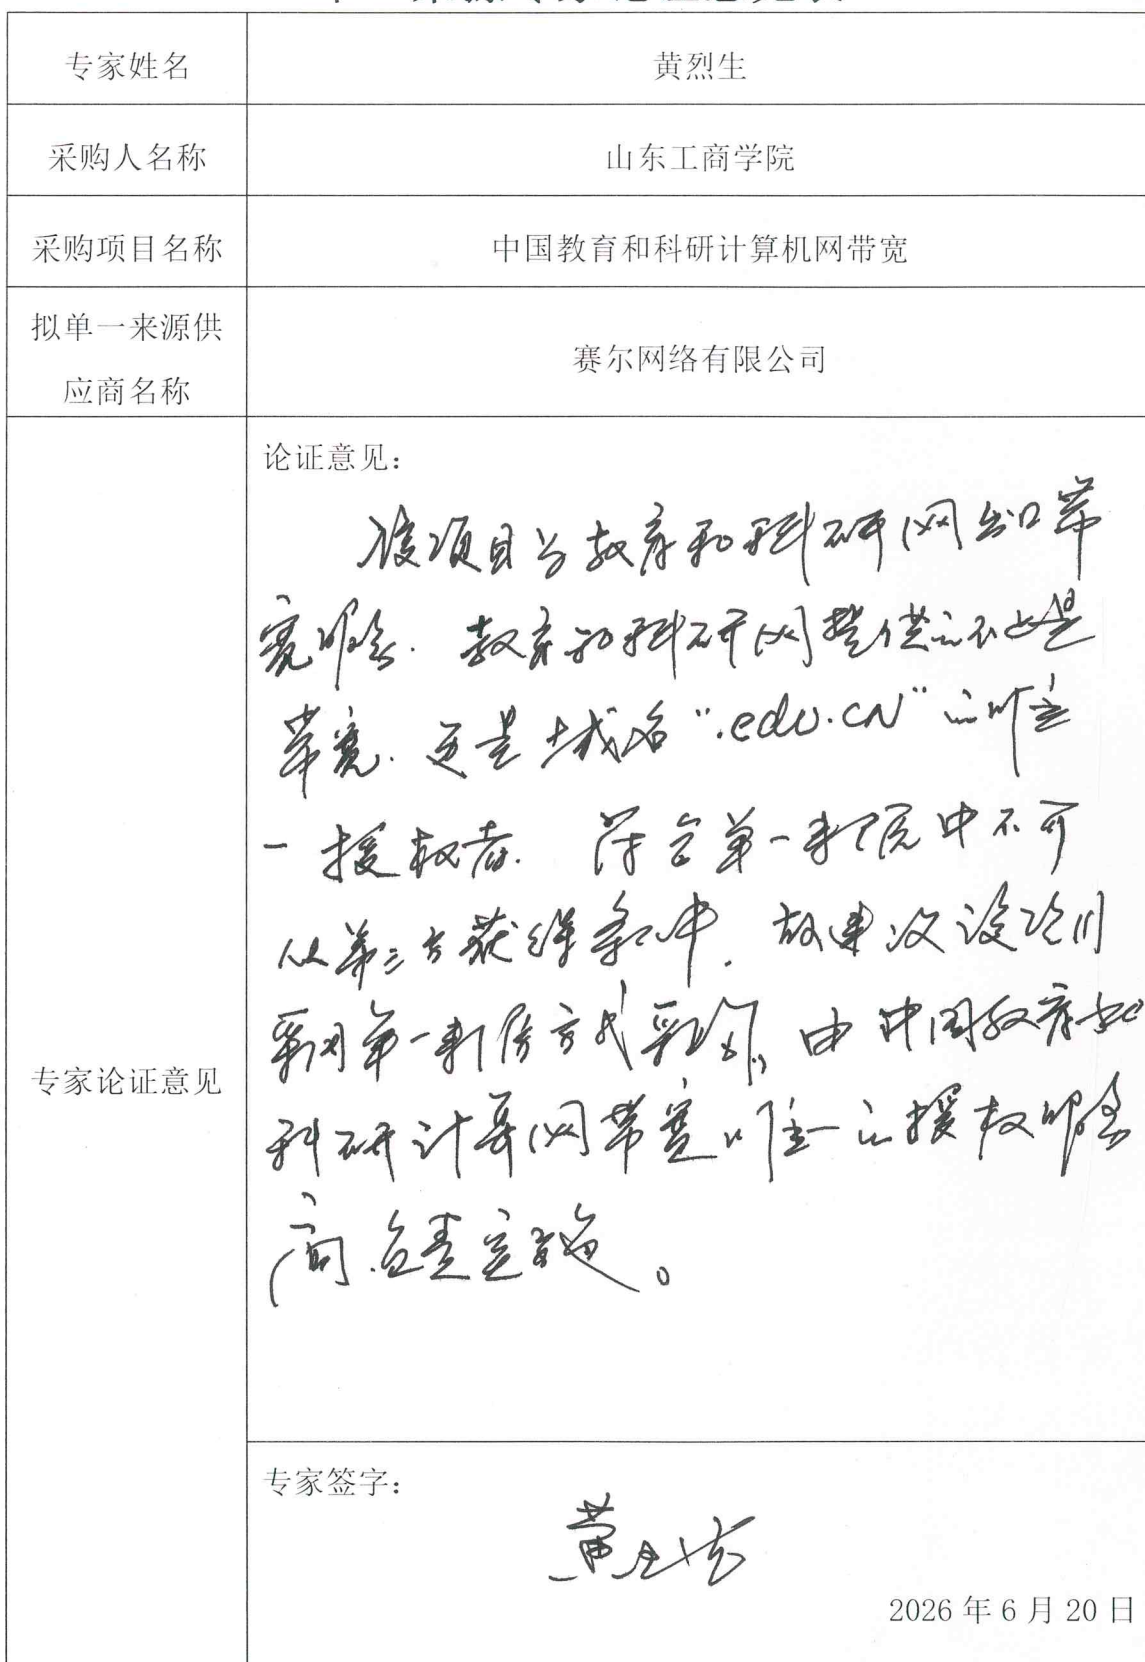 专家姓名
黄烈生
采购人名称
山东工商学院
采购项目名称
中国教育和科研计算机网带宽
拟单一来源供
应商名称
赛尔网络有限公司
专家论证意见
论证意见:
该项目为教育和科研网出口带
宽服务. 教育和科研网提供的不仅是
带宽. 还是域名“.edu.cn”的唯
一授权者. 符合单一来源中不可
从第三方获得条件. 故建议该项目
采用单一来源方式采购, 由中国教育和
科研计算网带宽唯一的授权服务
商负责实施。
专家签字:
2026年6月20日